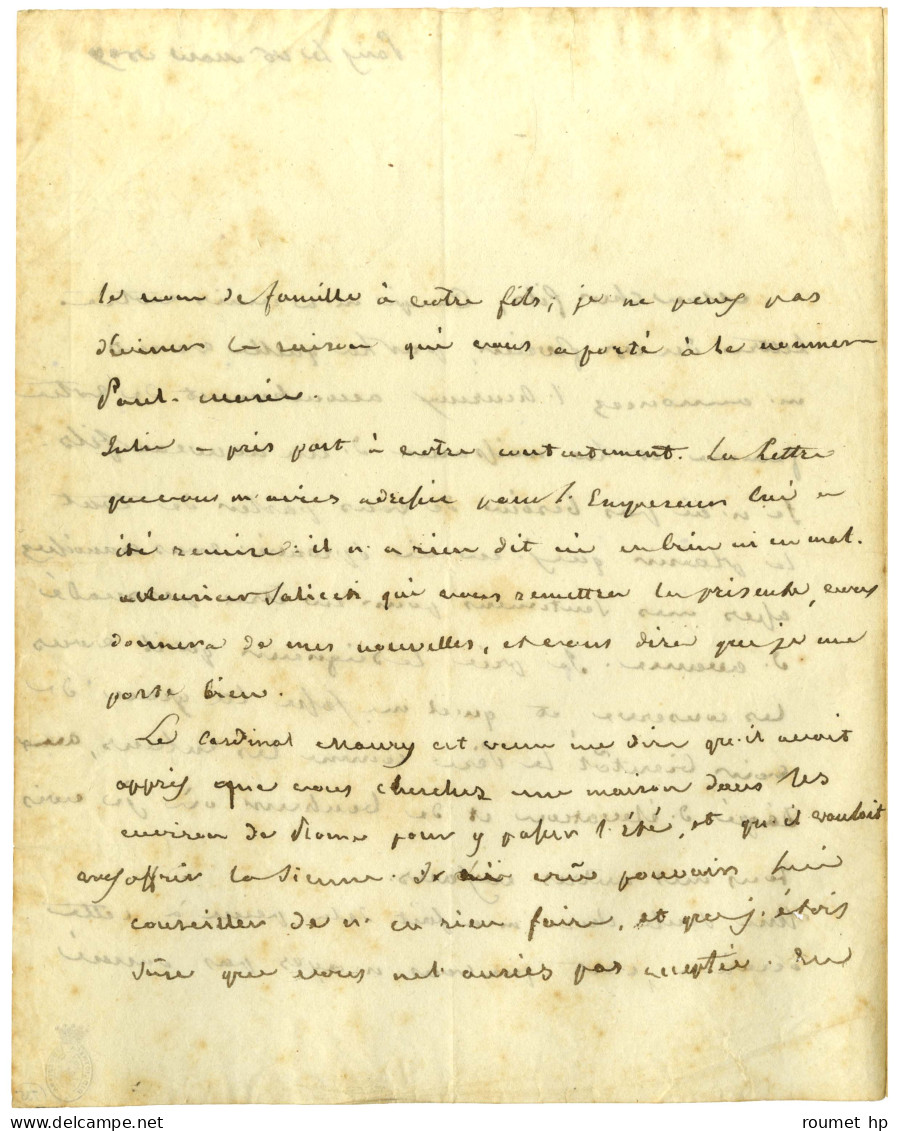 le nom de famille à votre fils; je ne peux pas
diviner la raison qui vous a porté à le nommer
Paul-marie.
Julie a pris part à votre contentement. La lettre
que vous m'aviés adressée pour l'Empereur lui a
été remise: il n'a rien dit ni en bien ni en mal.
Monsieur Saliceti qui vous remettra la présente, vous
donnera de mes nouvelles, et vous dira que je me
porte bien.
Le Cardinal Maury est venu me dire qu'il avoit
appris que vous cherchez une maison dans les
environ de Rome pour y passer l'été, et qu'il vouloit
offrir la sienne. J'ai crû pouvoir lui
conseiller de n'en rien faire, et que j'étois
sûre que vous ne l'auriés pas acceptée. En
roumet hp